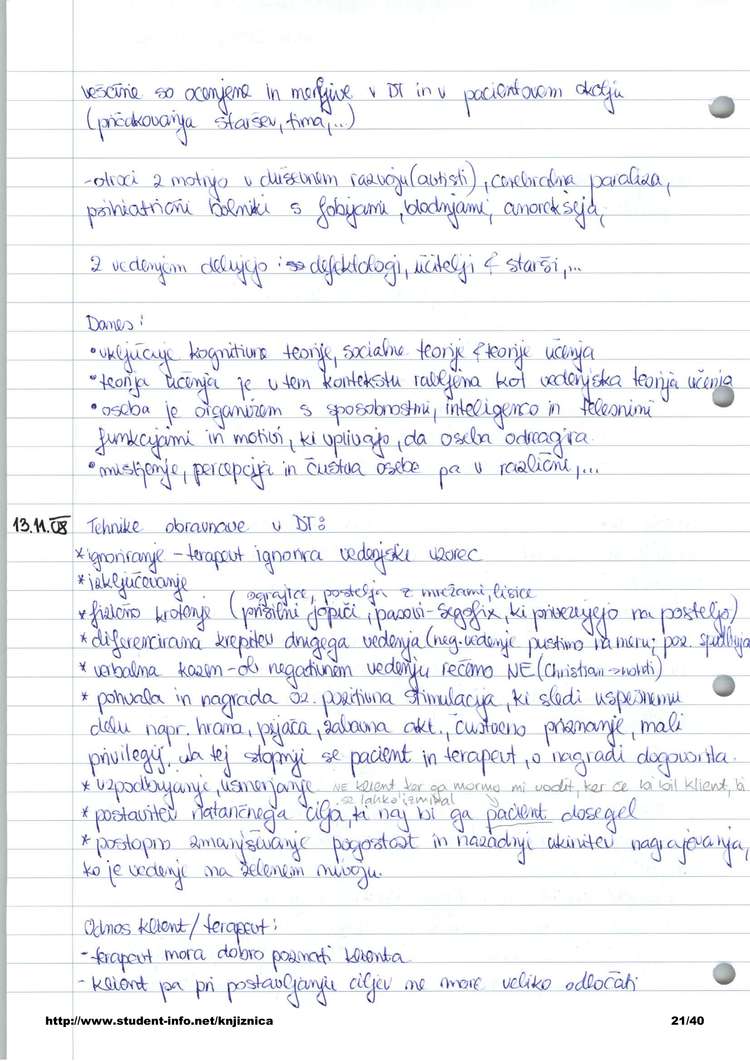 veščine so ocenjene in merljive v DT in v pacientovem okolju
(pričakovanja staršev, tima,...)
-otroci z motnjo v duševnem razvoju (avtisti), cerebralna paraliza,
psihiatrični bolniki s fobijami, blodnjami, anoreksija,
Z vedenjem delujejo: defektologi, učitelji & starši,...
Danes:
•vključuje kognitivne teorije, socialne teorije & teorije učenja
•teorija učenja je v tem kontekstu rabljena kot vedenjska teorija učenja
•oseba je organizem s sposobnostmi, inteligenco in telesnimi
funkcijami in motivi, ki vplivajo, da oseba odreagira.
•mišljenje, percepcija in čustva osebe pa v različni,...
13.11.08 Tehnike obravnave v DT:
*ignoriranje - terapevt ignorira vedenjski vzorec
*izključevanje
ograjice, postelja z mrežami, lisice
*fizično krotenje (prisilni jopiči, pasovi-Segofix, ki privezujejo na posteljo)
*diferencirana krepitev drugega vedenja (neg. vedenje pustimo na miru; poz. spodbuja
*verbalna kazen - ob negativnem vedenju rečemo NE (Christian → hotdi)
*pohvala in nagrada oz. pozitivna stimulacija, ki sledi uspešnemu
delu napr. hrana, pijača, zabavna akt., čustveno priznanje, mali
privilegij. Na tej stopnji se pacient in terapevt, o nagradi dogovorita.
*vzpodbujanje, usmerjanje NE klient ker ga mormo mi vodit, ker če bi bil klient, bi
se lahko izmikal
*postavitev natančnega cilja, ki naj bi ga pacient dosegel
*postopno zmanjševanje pogostost in nazadnji ukinitev nagrajevanja,
ko je vedenje na želenem nivoju.
Odnos klient/terapevt:
-terapevt mora dobro poznati klienta
-klient pa pri postavljanju ciljev ne more veliko odločati
http://www.student-info.net/knjiznica 21/40